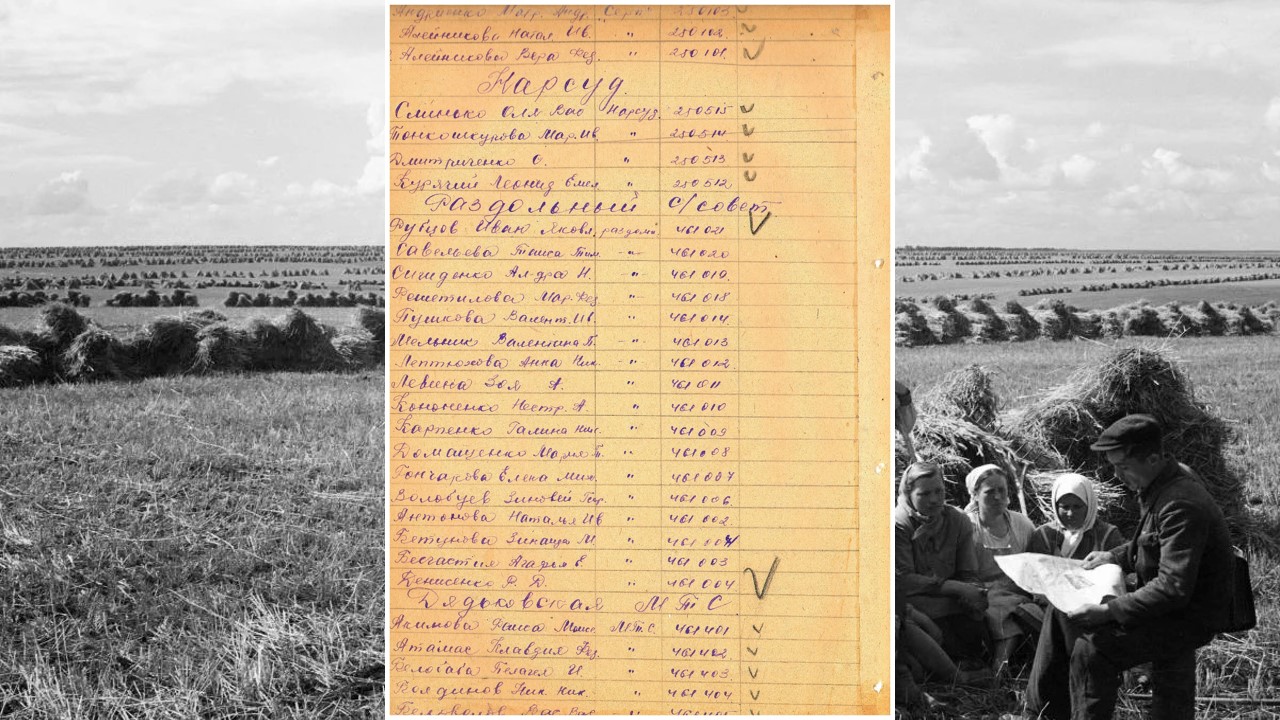 Андриенко Мар. Андр. "Серп" 250103
Алейникова Натал. Ив. " 250102
Алейникова Вера Фед. " 250101.
Нарсуд.
Слинько Оля Вас Нарсуд. 250515
Тонкошкурова Мар. Ив. " 250514
Дмитриченко О. " 250513
Курячий Леонид Емел. " 250512
Раздольный с/совет
Рубцов Иван Яковл. раздольн. 461021
Савельева Таиса Тим. -"- 461020
Сигиденко Ал-дра Н. -"- 461019.
Решетилова Мар. Фед. -"- 461018
Пушкова Валент. Ив. -"- 461014.
Мельник Валентина П. -"- 461013
Лептюхова Анна Ник. -"- 461012.
Левина Зоя А. " 461011
Кононенко Нестр. А. " 461010
Карпенко Галина Ник. " 461009
Домащенко Мария Т. " 461008
Гончарова Елена Мих. " 461007
Волобуев Зиновей Гр. " 461006
Антонова Наталья Ив " 461002
Бетунова Зинаида М. "
Бесчастия Агафья Е. " 461003
Денисенко Р. Д. " 461004
Дядьковская МТС
Акимова Раиса Моис. МТС. 461401
Атамас Клавдия Фед. " 461402
Пелагея И. " 461403
Ник. Ник. " 461404